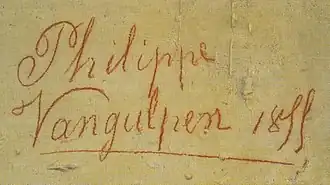 Philippe
Vangulpen 1855